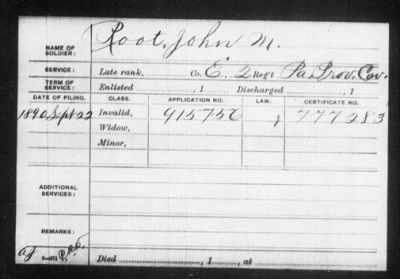 NAME OF SOLDIER: Root, John M.
SERVICE: Late rank, Co. E, 2 Reg't Pa. Prov. Cav.
TERM OF SERVICE: Enlisted , 1 Discharged , 1
DATE OF FILING. CLASS. APPLICATION NO. LAW. CERTIFICATE NO.
1890 Sept 22 Invalid, 915756 J 777283
Widow,
Minor,
ADDITIONAL SERVICES:
REMARKS:
Died , 1 , at